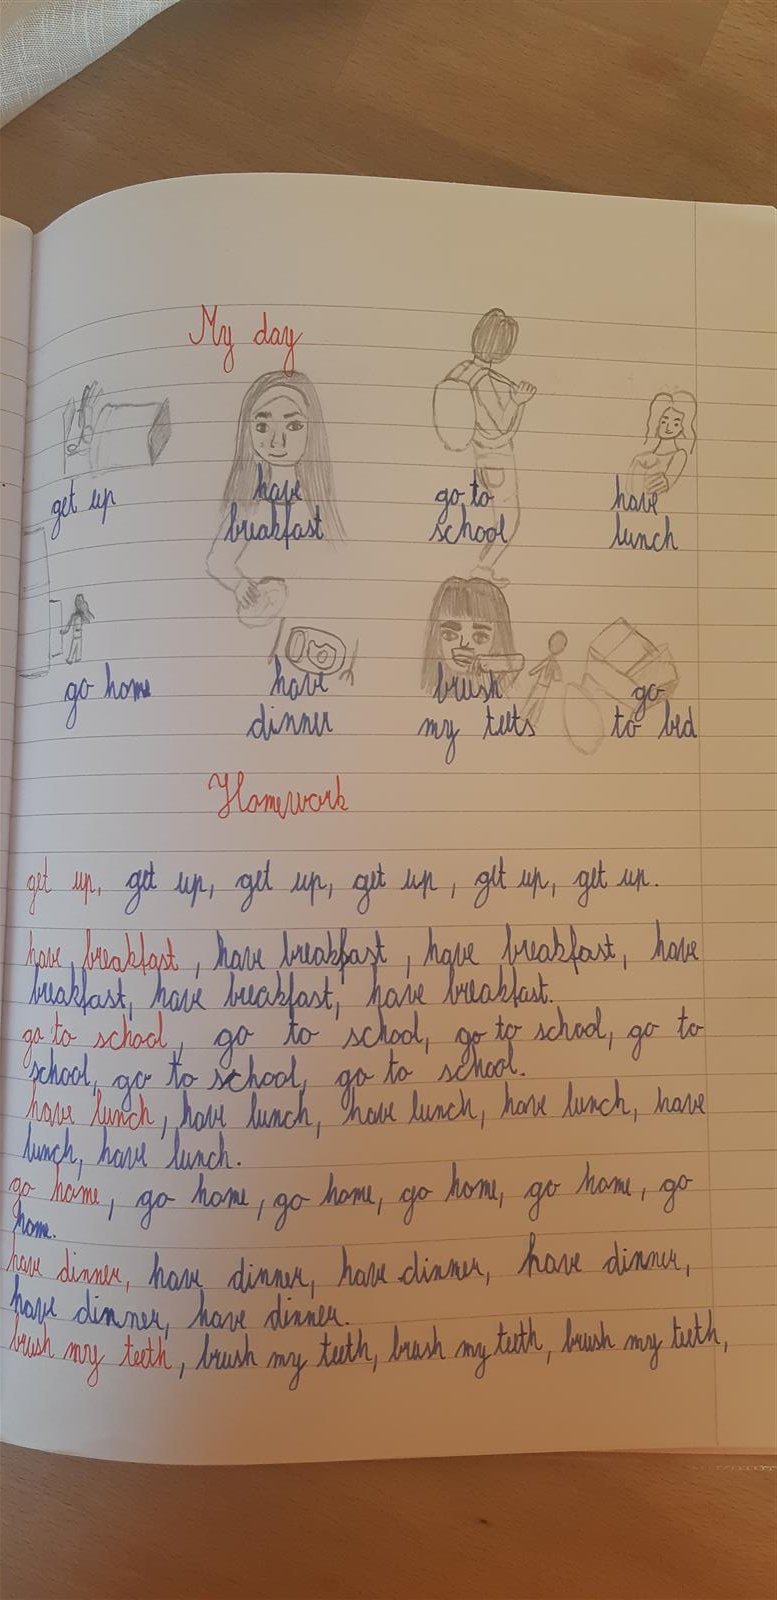 My day
get up
have
breakfast
go to
school
have
lunch
go home
have
dinner
brush
my teets
go
to bed
Homework
get up, get up, get up, get up, get up, get up.
have breakfast, have breakfast, have breakfast, have
breakfast, have breakfast, have breakfast.
go to school, go to school, go to school, go to
school, go to school, go to school.
have lunch, have lunch, have lunch, have lunch, have
lunch, have lunch.
go home, go home, go home, go home, go home, go
home.
have dinner, have dinner, have dinner, have dinner,
have dinner, have dinner.
brush my teeth, brush my teeth, brush my teeth, brush my teeth,